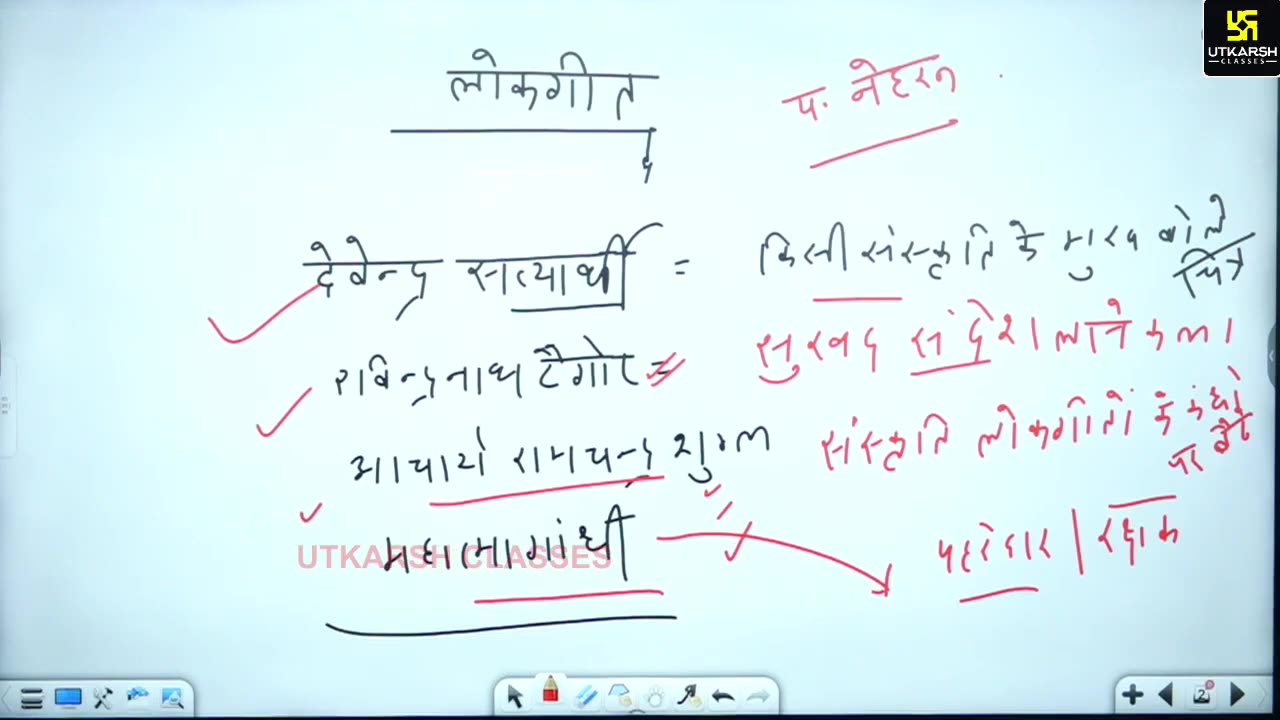 UTKARSH
CLASSES
लोकगीत
प. नेहरू
देवेन्द्र सत्यार्थी = किसी संस्कृति के मुख बोले
चित्र
रविन्द्रनाथ टैगोर = सुखद संदेश लाने कला
आचार्य रामचन्द्र शुक्ल संस्कृति लोकगीतों के कंधो
पर बैठ
महात्मा गांधी पहरेदार | रक्षक
UTKARSH CLASSES
2